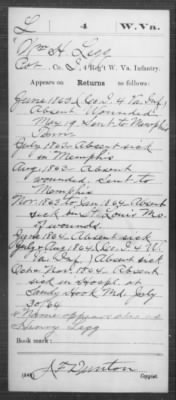 L 4 W. Va.
Wm H. Legg
Co. I, 4 Reg't W. Va. Infantry.
Appears on Returns as follows:
June 1863 (Co. I 4 Va Inf)
Absent wounded
May 19 Sent to Memphis
Tenn.
July 1863 Absent sick
in Memphis
Aug. 1863 Absent
wounded, sent to
Memphis
Nov. 1863 to Jan 1864 Absent
sick in St. Louis Mo.
of wounds
June 1864 Absent sick
July & Aug 1864 (Co. I 4 W.
Va Inf.) Absent sick
Oct & Nov. 1864 Absent
sick in Hospl. at
Sandy Hook Md. July
30/64
Name appears also as
Henry Legg
Book mark:
Copyist.